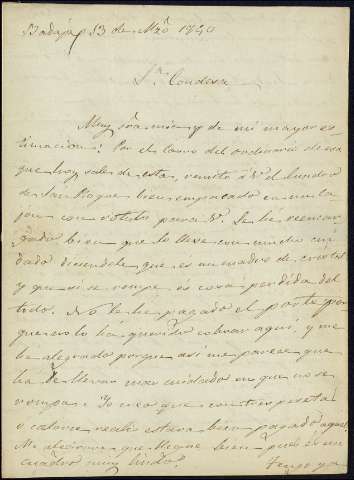 Badajoz 13 de Mzo 1840
Sra. Condesa
Muy Sra. mia y de mi mayor es
timacion: Por el carro del ordinario de
que hoy sale de esta, remito a V. el
de San Roque bien empacado en un ca
jon con rotulo para V. Le he reencar
gado bien que lo lleve con mucho cui
dado diciendole que es un cuadro de cristal
y que si se rompe, es cosa perdida del
todo. No le he pagado el porte por
que no lo ha querido cobrar aqui, y me
he alegrado porque asi me parece que
ha de llevar mas cuidado en que no se
rompa. Yo creo que con tres pesetas
o catorce reales estara bien pagado aquel.
Me alegrare que llegue bien, pues es un
cuadro muy lindo.
Tengo ya